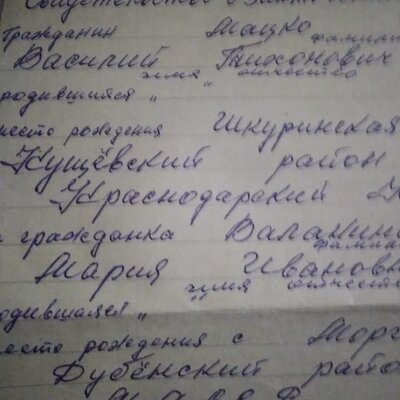 Свидетельство о
Гражданин Мацко
фамили
Василий Тихонович
имя отчество
родившийся "
место рождения Шкуринская
Кущёвский район
Краснодарский
гражданка
фамили
Мария Ивановн
имя отчество
одившаяся "
место рождения с Морг
Дубёнский райо